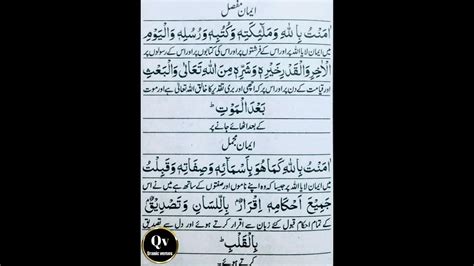 ایمان مفصل
اٰمَنْتُ بِاللّٰهِ وَمَلٰٓئِكَتِهٖ وَكُتُبِهٖ وَرُسُلِهٖ وَالْيَوْمِ
میں ایمان لایا اللہ پر اور اس کے فرشتوں پر اور اس کی کتابوں پر اور اس کے رسولوں پر
الْاٰخِرِ وَالْقَدْرِ خَيْرِهٖ وَشَرِّهٖ مِنَ اللّٰهِ تَعَالٰى وَالْبَعْثِ
اور قیامت کے دن پر اور اس پر کہ اچھی اور بری تقدیر کا خالق اللہ تعالیٰ ہے اور موت
بَعْدَ الْمَوْتِ ؕ
کے بعد اٹھائے جانے پر
ایمان مجمل
اٰمَنْتُ بِاللّٰهِ كَمَا هُوَ بِاَسْمَآئِهٖ وَصِفَاتِهٖ وَقَبِلْتُ
میں ایمان لایا اللہ پر جیسا کہ وہ اپنے ناموں اور صفتوں کے ساتھ ہے میں نے اس
جَمِيْعَ اَحْكَامِهٖ اِقْرَارٌۢ بِاللِّسَانِ وَتَصْدِيْقٌۢ
کے تمام احکام قبول کئے زبان سے اقرار کرتے ہوئے اور دل سے تصدیق
بِالْقَلْبِ ؕ
کرتے ہوئے
Qv